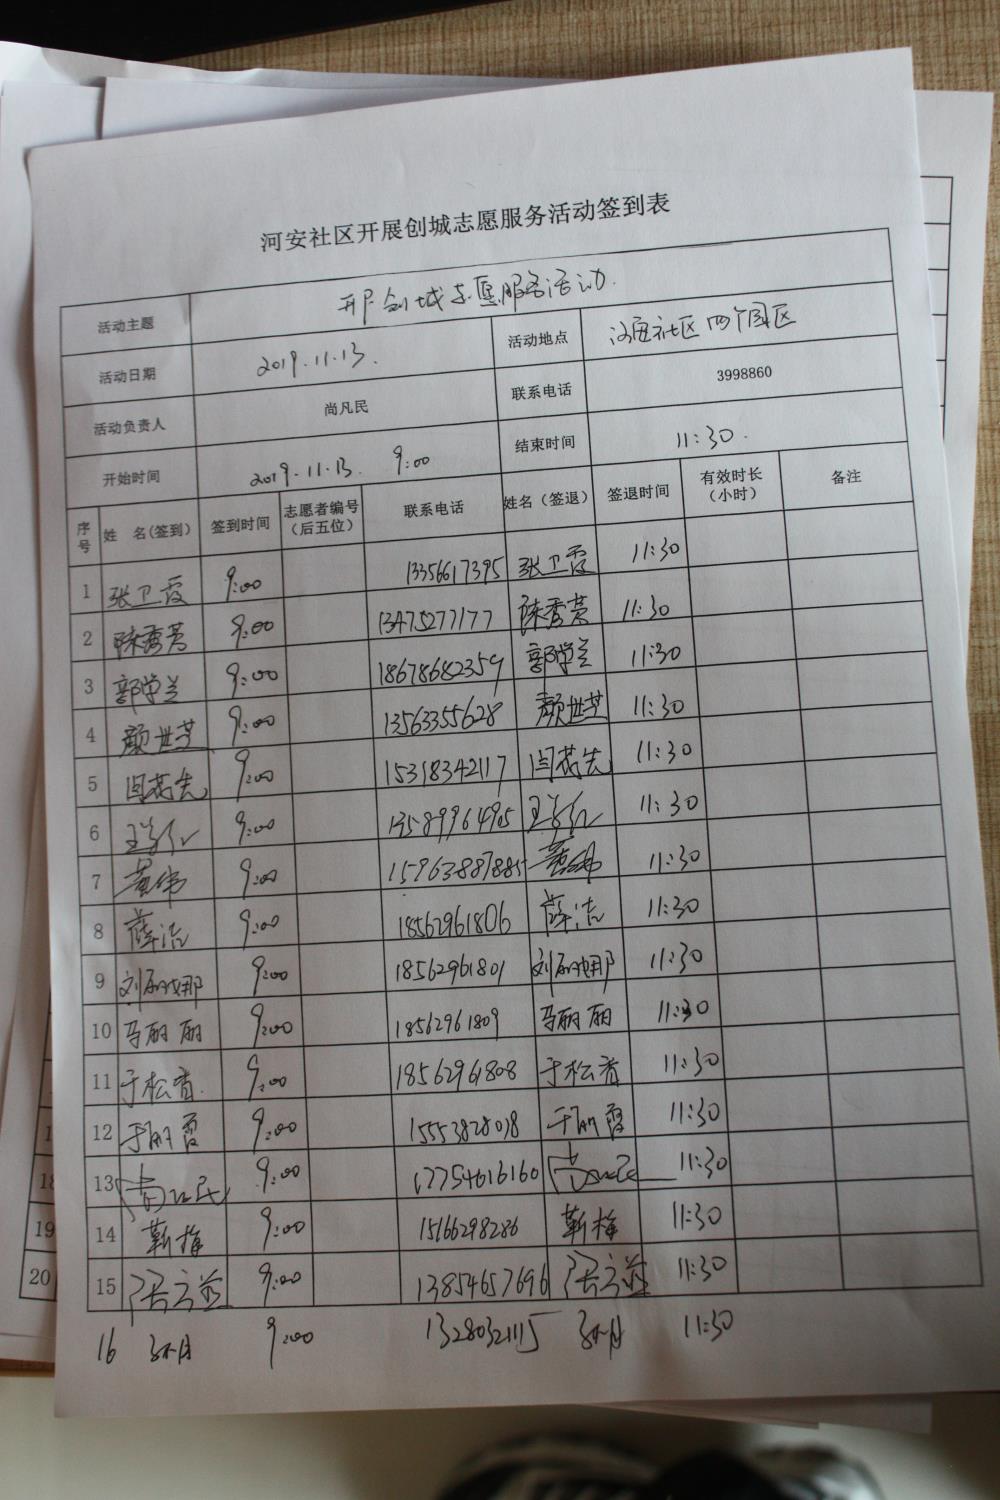 河安社区开展创城志愿服务活动签到表
活动主题 开展创城志愿服务活动
活动日期 2019.11.13. 活动地点 河安社区四个园区
活动负责人 尚凡民 联系电话 3998860
开始时间 2019.11.13. 9:00 结束时间 11:30.
序号 姓 名(签到) 签到时间 志愿者编号（后五位） 联系电话 姓名（签退） 签退时间 有效时长（小时） 备注
1 张卫霞 9:00 13356617395 张卫霞 11:30
2 陈秀英 9:00 13475277177 陈秀英 11:30
3 郭学兰 9:00 18678682359 郭学兰 11:30
4 颜世芝 9:00 13563355628 颜世芝 11:30
5 闫花先 9:00 15318342117 闫花先 11:30
6 9:00 13589964905 11:30
7 黄伟 9:00 15963887885 黄伟 11:30
8 薛洁 9:00 18562961806 薛洁 11:30
9 刘丽娜 9:00 18562961801 刘丽娜 11:30
10 马丽丽 9:00 18562961809 马丽丽 11:30
11 于松青. 9:00 18562961808 于松青 11:30
12 于丽霞 9:00 15553828018 于丽霞 11:30
13 9:00 17754616160 11:30
14 靳梅 9:00 15166298286 靳梅 11:30
15 9:00 13854657696 11:30
16 9:00 13280321115 11:30
18
19
20